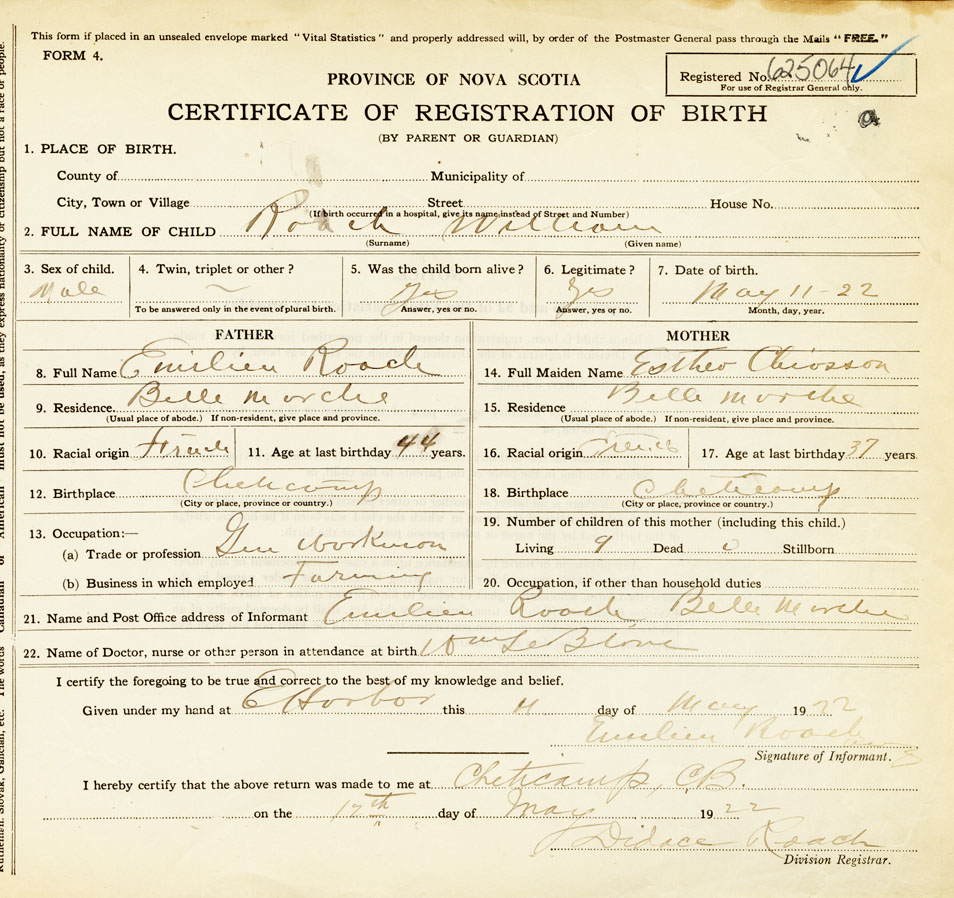 This form if placed in an unsealed envelope marked "Vital Statistics" and properly addressed will, by order of the Postmaster General pass through the Mails "FREE."
FORM 4.
Registered No. 625064
For use of Registrar General only.
PROVINCE OF NOVA SCOTIA
CERTIFICATE OF REGISTRATION OF BIRTH
(BY PARENT OR GUARDIAN)
1. PLACE OF BIRTH.
County of Municipality of
City, Town or Village Street House No.
(If birth occurred in a hospital, give its name instead of Street and Number)
2. FULL NAME OF CHILD Roach William
(Surname) (Given name)
3. Sex of child. 4. Twin, triplet or other? 5. Was the child born alive? 6. Legitimate? 7. Date of birth.
Male Yes Yes May 11-22
To be answered only in the event of plural birth. Answer, yes or no. Answer, yes or no. Month, day, year.
FATHER MOTHER
8. Full Name Emilien Roach 14. Full Maiden Name Esther Chiosson
9. Residence. Belle Marche 15. Residence Belle Marche
(Usual place of abode.) If non-resident, give place and province. (Usual place of abode.) If non-resident, give place and province.
10. Racial origin French 11. Age at last birthday 44 years. 16. Racial origin French 17. Age at last birthday 37 years
12. Birthplace Cheticamp 18. Birthplace Cheticamp
(City or place, province or country.) (City or place, province or country.)
13. Occupation:— 19. Number of children of this mother (including this child.)
(a) Trade or profession Gen workman Living 9 Dead Stillborn
(b) Business in which employed Farming 20. Occupation, if other than household duties
21. Name and Post Office address of Informant Emilien Roach Belle Marche
22. Name of Doctor, nurse or other person in attendance at birth Wm Le Blanc
I certify the foregoing to be true and correct to the best of my knowledge and belief.
Given under my hand at E Harbor this 11 day of May 1922
Emilien Roach
Signature of Informant.
I hereby certify that the above return was made to me at Cheticamp, C.B.
on the 17th day of May 1922
Didace Roach
Division Registrar.